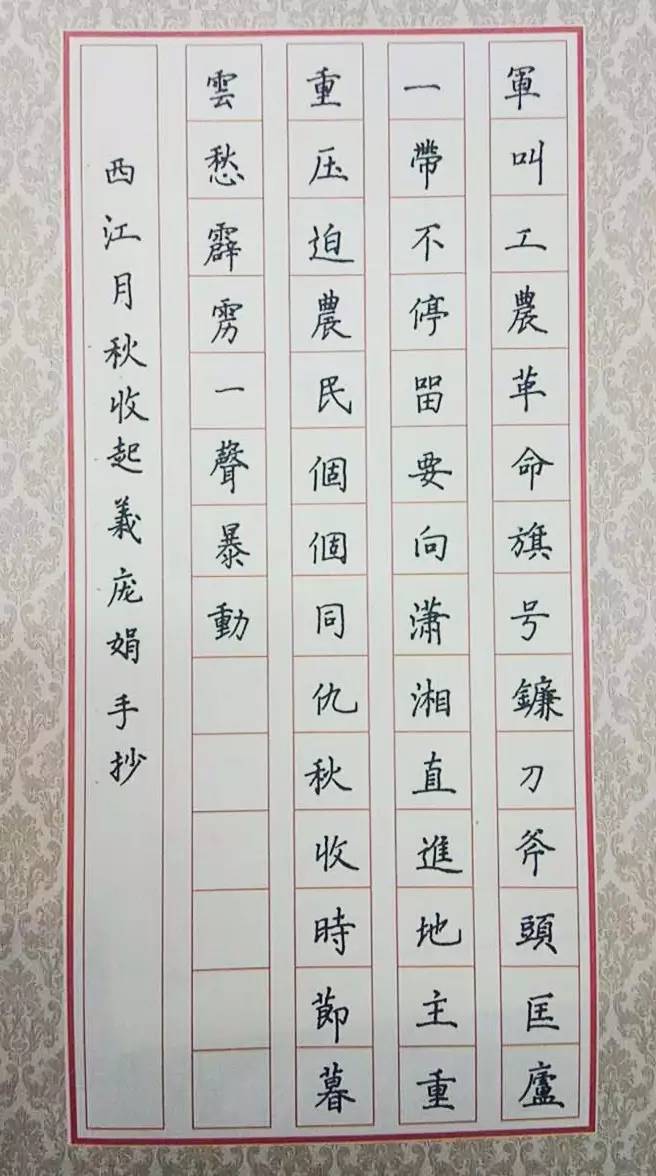 軍叫工農革命旗号鐮刀斧頭匡廬
一帶不停畱要向瀟湘直進地主重
重压迫農民個個同仇秋收時節暮
雲愁霹雳一聲暴動
西江月秋收起義庞娟手抄